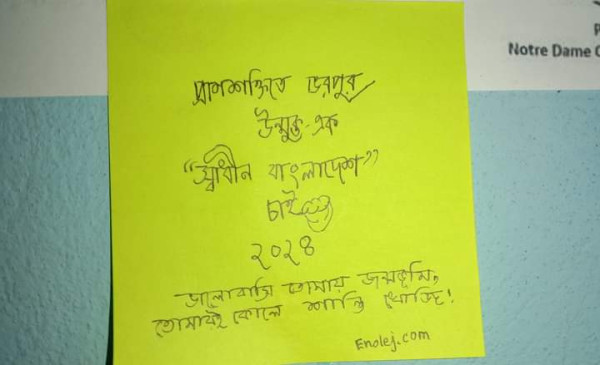 P
Notre Dame C
প্রাণশক্তিতে ভরপুর
উন্মুক্ত এক
“স্বাধীন বাংলাদেশ”
চাই
২০২৪
ভালোবাসি তোমায় জন্মভূমি,
তোমারই কোলে শান্তি খোঁজি!
Enolej.com